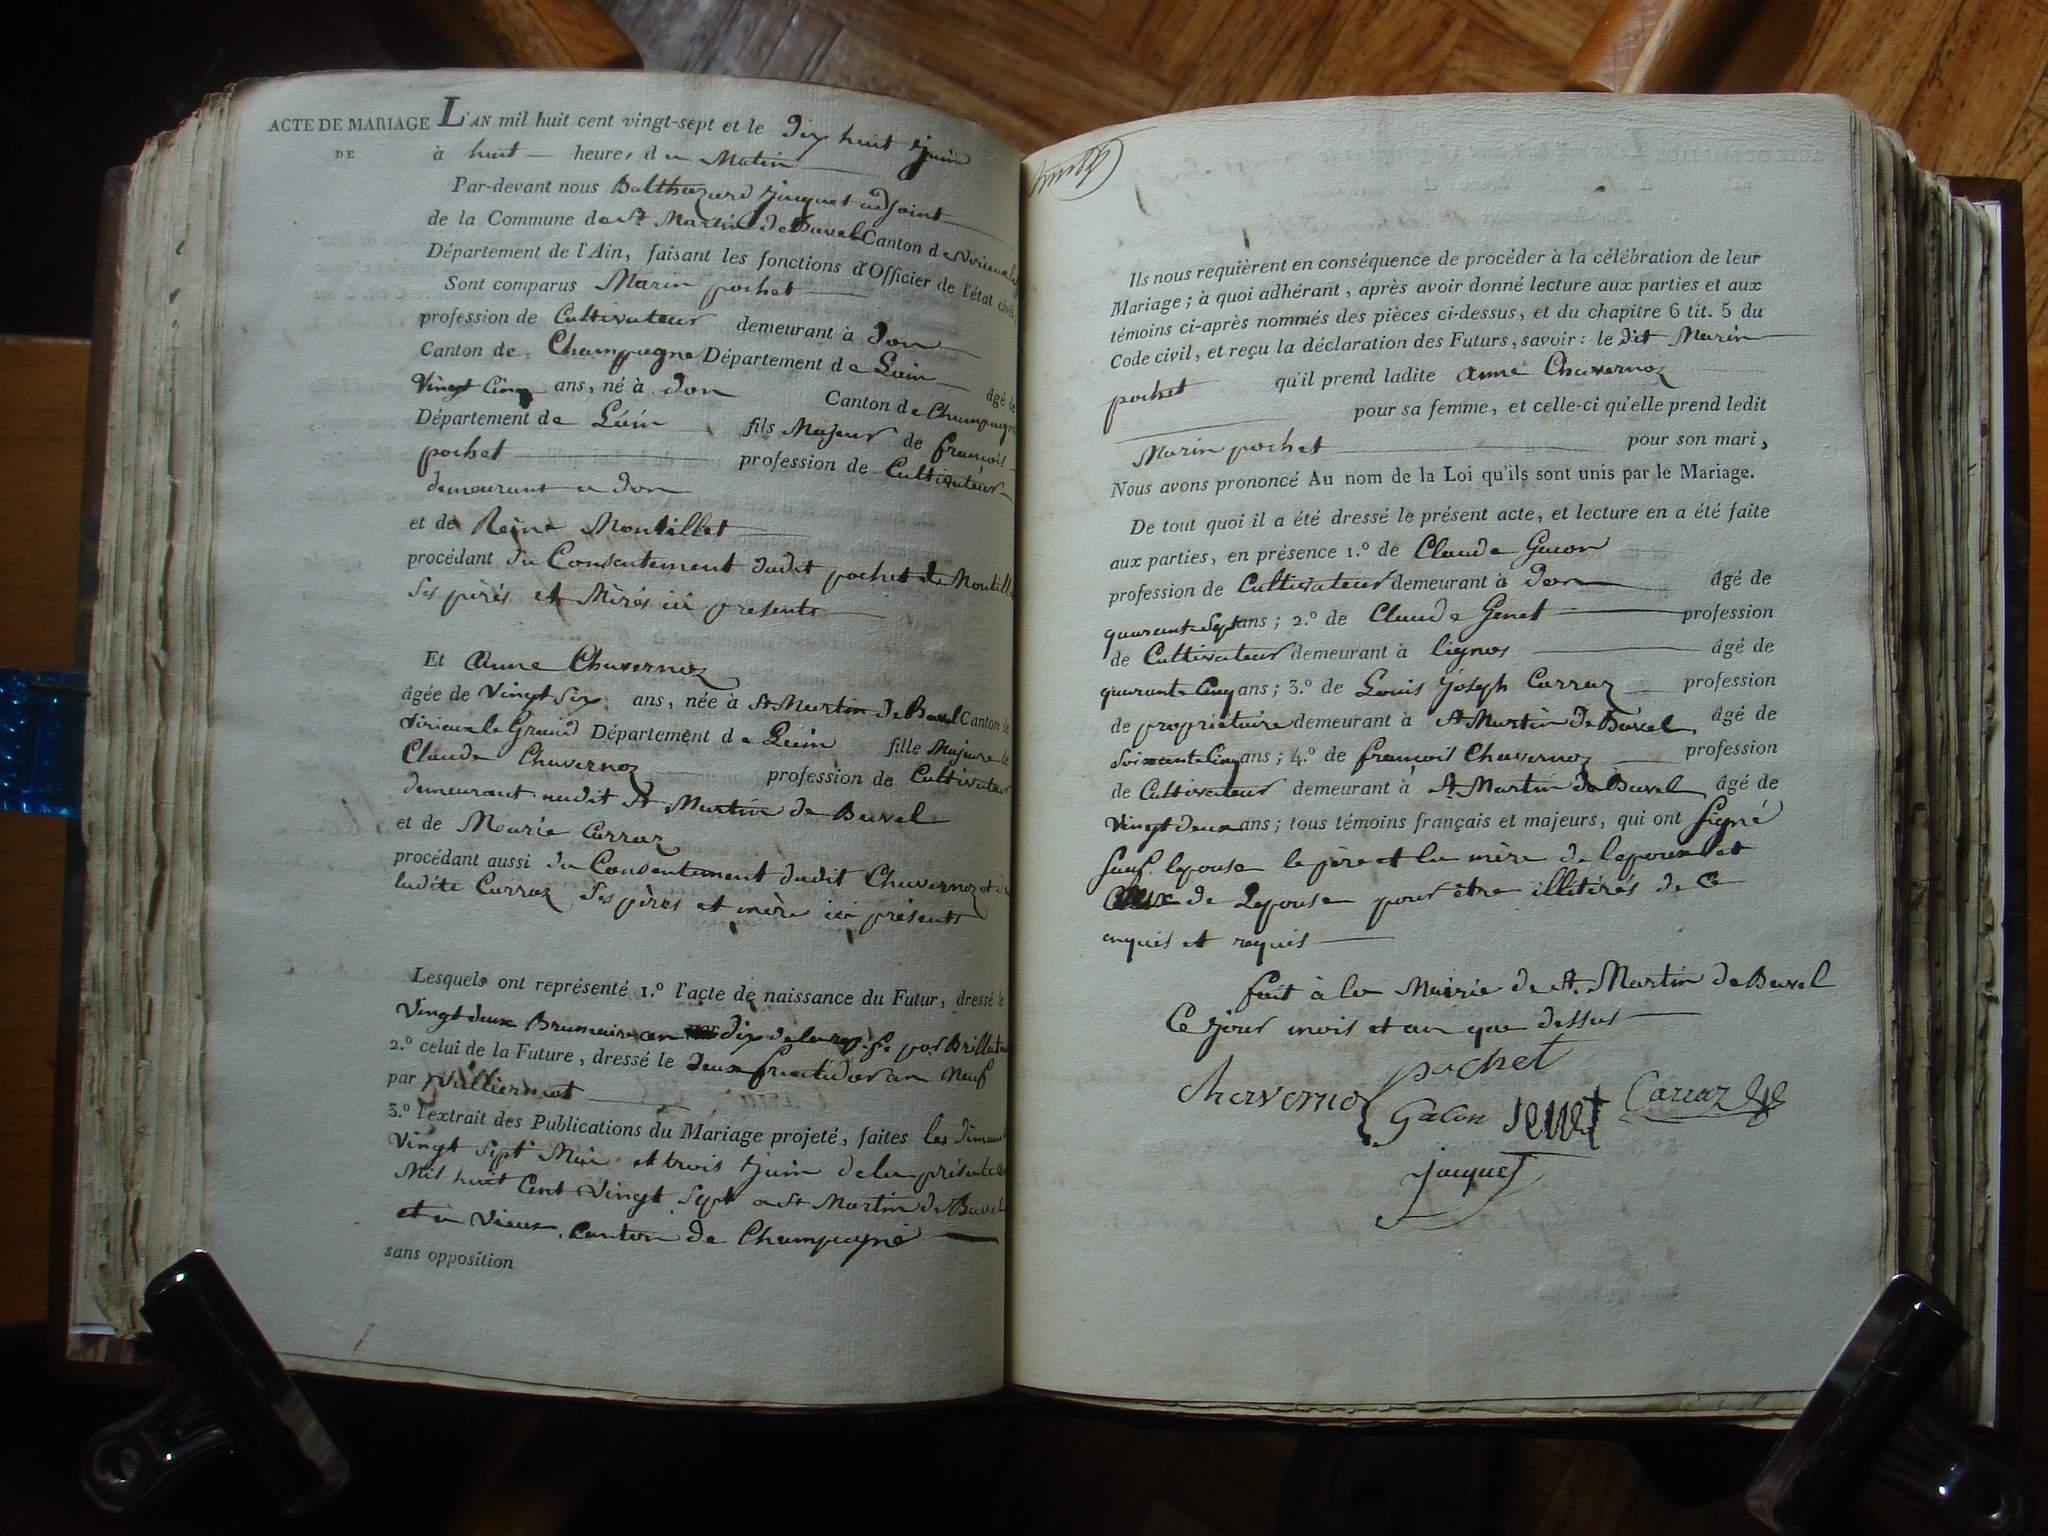 ACTE DE MARIAGE
DE
L'AN mil huit cent vingt-sept et le Dix huit juin
à huit heures du Matin
Par-devant nous Balthazard Jacquet adjoint
de la Commune de St Martin de Bavel Canton de Virieu le
Département de l'Ain, faisant les fonctions d'Officier de l'état civil,
Sont comparus Marin pochet
profession de Cultivateur demeurant à Don
Canton de Champagne Département de Lain âgé de
Vingt Cinq ans, né à Don Canton de Champagne
Département de Lain fils Majeur de françois
pochet profession de Cultivateur
demeurant a Don
et de Reine Montillet
procédant du Consentement dudit pochet et Montillet
ses pères et Mères ici presents
Et Anne Chavernoz
âgée de Vingt Six ans, née à St Martin de Bavel Canton de
Virieu le Grand Département de Lain fille Majeure de
Claude Chavernoz profession de Cultivateur
demeurant audit St Martin de Bavel
et de Marie Carraz
procédant aussi du Consentement dudit Chavernoz et de
ladite Carraz ses pères et mère ici présents
Lesquels ont représenté 1.° l'acte de naissance du Futur, dressé le
Vingt deux Brumaire an dix de la rep. fse par Brillat
2.° celui de la Future, dressé le deux fructidor an Neuf
par Vulliermet
3.° l'extrait des Publications du Mariage projeté, faites les dimanches
Vingt Sept Mai et trois juin de la présente
Mil huit Cent Vingt Sept a St Martin de Bavel
et a Vieux Canton de Champagne
sans opposition
Ils nous requièrent en conséquence de procéder à la célébration de leur
Mariage; à quoi adhérant, après avoir donné lecture aux parties et aux
témoins ci-après nommés des pièces ci-dessus, et du chapitre 6 tit. 5 du
Code civil, et reçu la déclaration des Futurs, savoir: le dit Marin
pochet qu'il prend ladite Anne Chavernoz
pour sa femme, et celle-ci qu'elle prend ledit
Marin pochet pour son mari,
Nous avons prononcé Au nom de la Loi qu'ils sont unis par le Mariage.
De tout quoi il a été dressé le présent acte, et lecture en a été faite
aux parties, en présence 1.° de Claude Gacon
profession de Cultivateur demeurant à Don âgé de
quarante Sept ans; 2.° de Claude Genet profession
de Cultivateur demeurant à lignos âgé de
quarante Cinq ans; 3.° de Louis Joseph Carraz profession
de propriétaire demeurant à St Martin de Bavel âgé de
Soixante Cinq ans; 4.° de françois Chavernoz profession
de Cultivateur demeurant à St Martin de Bavel âgé de
Vingt deux ans; tous témoins français et majeurs, qui ont Signé
sauf lepouse le père et la mère de lepoux et
Ceux de Lepouse pour être illitérés de ce
enquis et requis
fait à la Mairie de St Martin de Bavel
Ce jour mois et an que dessus
pochet
Chavernoz Gacon Jenet Carraz
jacquet